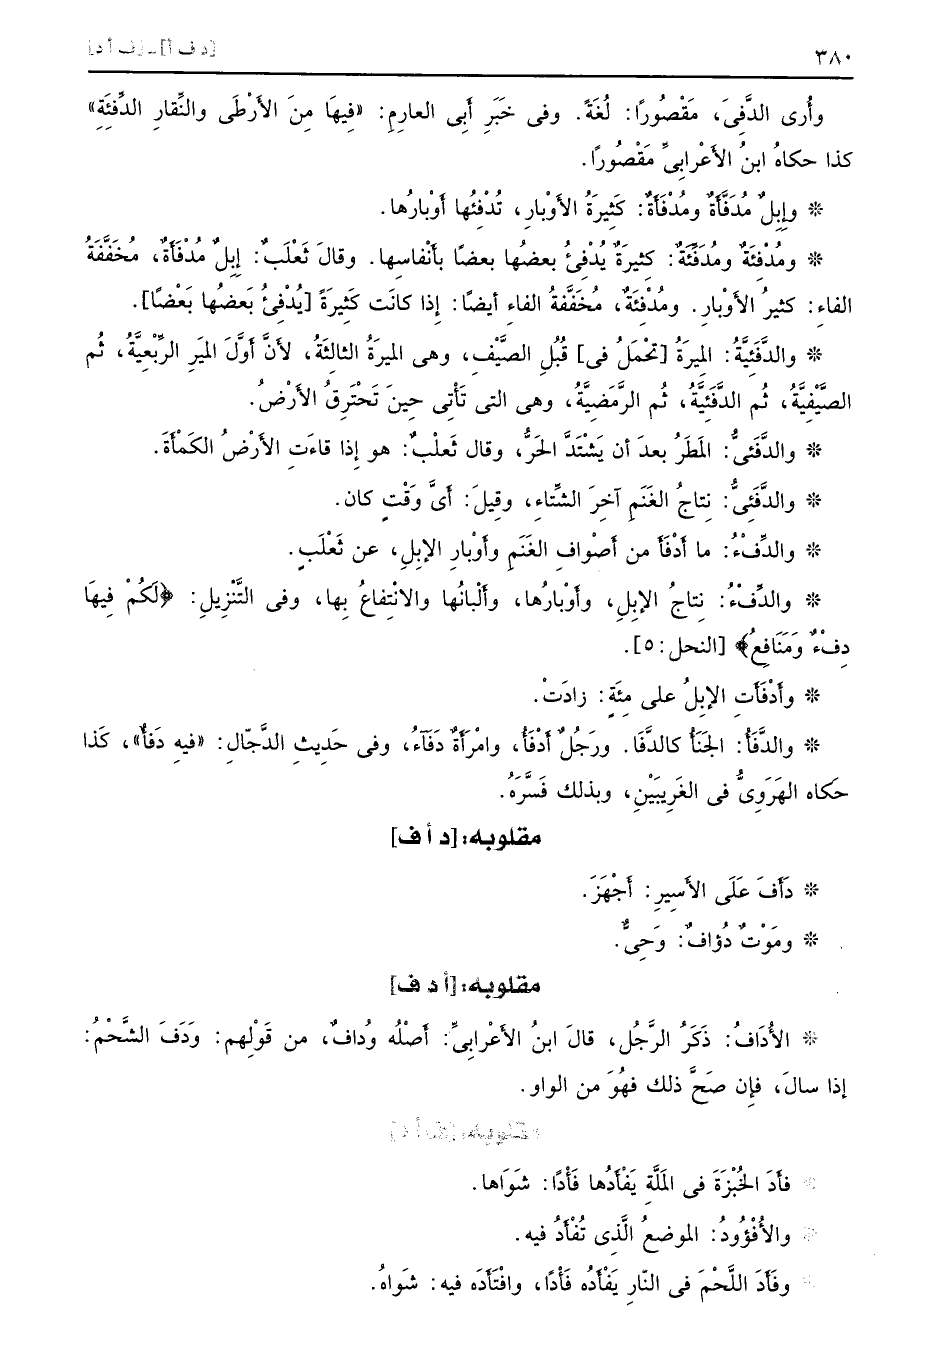 ٣٨٠ [د ف أ] ـ [ف أ د]
وأُرى الدَّفِئَ، مَقْصُورًا: لُغَةً. وفى خَبَرِ أَبِى العارِم: «فِيهَا مِنَ الأَرْطَى والنِّقارِ الدَّفِئَةِ»
كذا حكاهُ ابنُ الأَعْرابِىِّ مَقْصُورًا.
* وإِبِلٌ مُدَفَّأَةٌ ومُدْفَأَةٌ: كَثِيرَةُ الأَوْبارِ، تُدْفِئُها أَوْبارُها.
* ومُدْفِئَةٌ ومُدَفِّئَةٌ: كثيرَةٌ يُدْفِئُ بعضُها بعضًا بأَنْفاسِها. وقالَ ثَعْلَبٌ: إِبِلٌ مُدْفَأَةٌ، مُخَفَّفَةُ
الفاءِ: كثيرُ الأَوْبارِ. ومُدْفِئَةٌ، مُخَفَّفَةُ الفاءِ أيضًا: إذا كانَت كَثِيرَةً [يُدْفِئُ بَعضُها بَعْضًا].
* والدَّفَئِيَّةُ: المِيرَةُ [تحْمَلُ فى] قُبُلِ الصَّيْفِ، وهى المِيرَةُ الثالثَةُ، لأَنَّ أَوَّلَ المِيَرِ الرِّبْعِيَّةُ، ثُم
الصَّيْفِيَّةُ، ثُم الدَّفَئِيَّةُ، ثُم الرَّمَضِيَّةُ، وهى التى تَأْتِى حِينَ تَحْتَرِقُ الأَرْضُ.
* والدَّفَئِىُّ: المَطَرُ بعدَ أن يَشْتَدَّ الحَرُّ، وقال ثَعلْبٌ: هو إذا قاءَتِ الأَرْضُ الكَمْأَةَ.
* والدَّفَئِىُّ: نِتاجُ الغَنَمِ آخِرَ الشِّتاءِ، وقِيلَ: أَىَّ وَقْتٍ كان.
* والدِّفْءُ: ما أَدْفَأَ من أَصْوافِ الغَنَمِ وأَوْبارِ الإِبِلِ، عن ثَعْلَبٍ.
* والدِّفْءُ: نِتاجُ الإِبِلِ، وأَوْبارُها، وأَلْبانُها والانْتِفاعُ بِها، وفى التَّنْزِيلِ: ﴿لَكُمْ فِيهَا
دِفْءٌ وَمَنَافِعُ﴾ [النحل: ٥].
* وأَدْفَأَتِ الإِبِلُ على مِئَةٍ: زادَتْ.
* والدَّفَأُ: الجَنَأُ كالدَّفَا. ورَجُلٌ أَدْفَأُ، وامْرَأَةٌ دَفَآءُ، وفى حَدِيثِ الدَّجّالِ: «فيه دَفأٌ»، كَذا
حَكاه الهَرَوِىُّ فى الغَرِيبَيْنِ، وبذلك فَسَّرَهُ.
مقلوبه: [د أ ف]
* دَأَفَ عَلَى الأَسيرِ: أَجْهَزَ.
* ومَوْتٌ دُؤافٌ: وَحِىٌّ.
مقلوبه: [أ د ف]
* الأُدَافُ: ذَكَرُ الرَّجُلِ، قالَ ابنُ الأَعْرابِىِّ: أَصْلُه وُدافٌ، من قَوْلِهم: وَدَفَ الشَّحْمُ:
إذا سالَ، فإن صَحَّ ذلك فهُوَ من الواو.
مقلوبه: [ف أ د]
* فأَدَ الخُبْزَةَ فى المَلَّةِ يَفْأَدُها فَأْدًا: شَوَاها.
* والأُفْؤُودُ: الموضعُ الَّذِى تُفْأَدُ فيه.
* وفَأَدَ اللَّحْمَ فى النّارِ يَفْأَده فَأْدًا، وافْتَأَدَه فيه: شَواهُ.